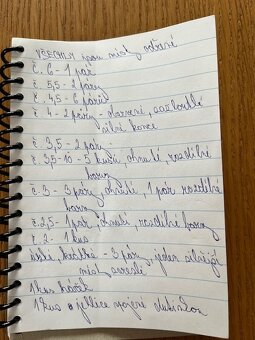 VŠECHNY jsou místy odřené
č. 6 - 1 pár
č. 5,5 - 2 páry
č. 4,5 - 6 párů
č. 4 - 2 páry - barevné,
silné konce
č. 3,5 - 2 páry -
č. 3,5 - 10 - 5 kusů, ohnuté, rozdílné
barvy
č. 3 - 3 páry, ohnuté, 1 pár rozdílné
barvy
č. 2,5 - 1 pár, ohnuté, rozdílné barvy
č. 2 - 1 kus
krátké - 3 páry, jeden silnější
místy
1 kus háček
1 kus jehlice spojené